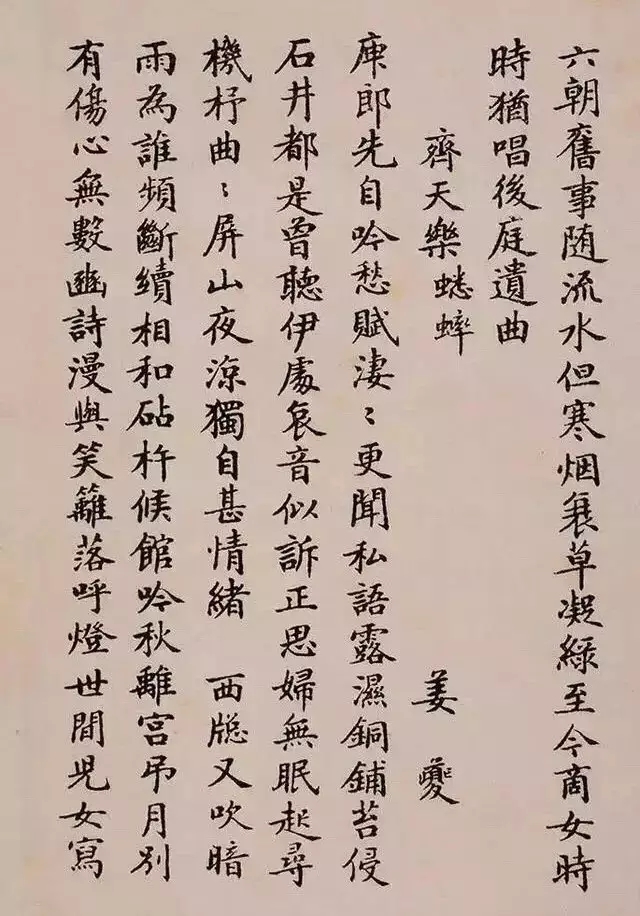 六朝舊事随流水但寒烟衰草凝綠至今商女時
時猶唱後庭遺曲
齊天樂蟋蟀 姜夔
庾郎先自吟愁賦淒〻更聞私語露濕銅鋪苔侵
石井都是曾聽伊處哀音似訴正思婦無眠起尋
機杼曲〻屏山夜涼獨自甚情緒 西牕又吹暗
雨為誰頻斷續相和砧杵候館吟秋離宮吊月別
有傷心無數豳詩漫與笑籬落呼燈世間兒女寫